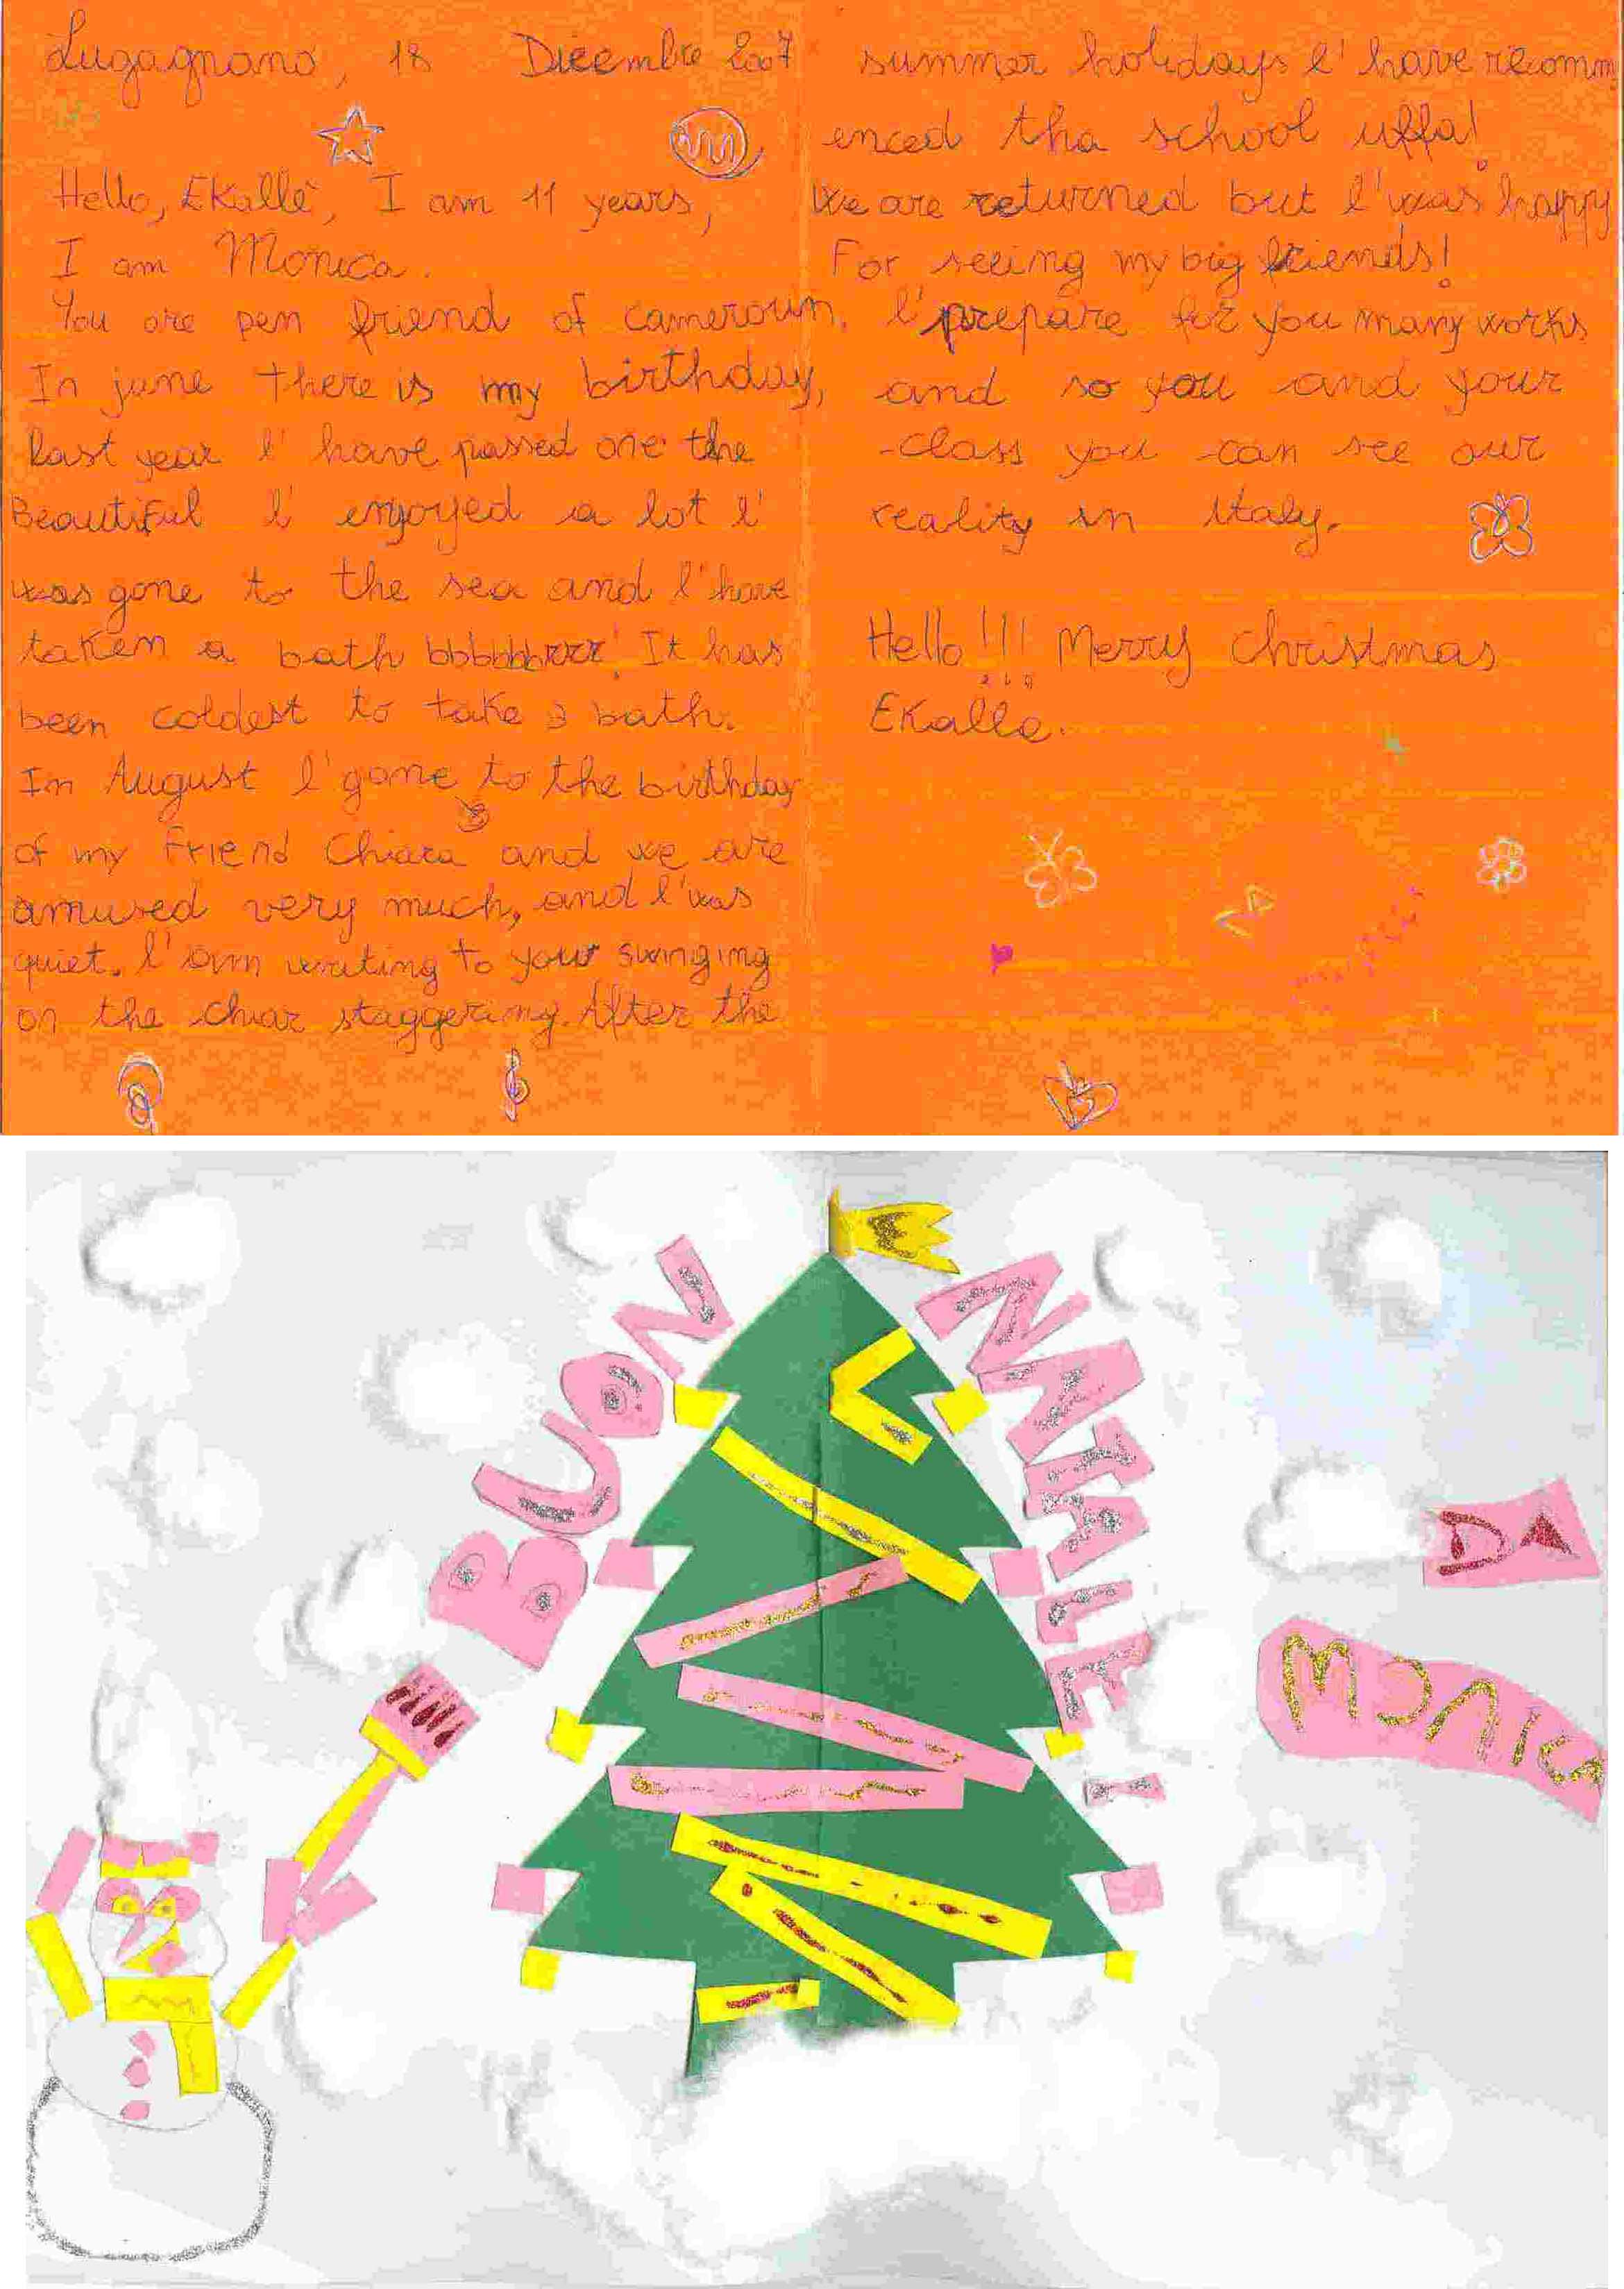 Lugagnano, 18 Dicembre 2007
Hello, Ekallé, I am 11 years,
I am Monica.
You are pen friend of cameroun.
In june there is my birthday,
last year l' have passed one the
Beautiful l' enjoyed a lot l'
was gone to the sea and l' have
taken a bath bbbbbbrrr! It has
been coldest to take a bath.
In August l' gone to the birthday
of my Friend Chiara and we are
amused very much, and l' was
quiet. l' am writing to your swinging
on the chiar staggering. After the
summer holidays l' have recomm
enced tha school uffa!
We are returned but l' was happy
For seeing my big friends!
l' prepare for you many works
and so you and your
class you can see our
reality in Italy.
Hello!!! Merry christmas
Ekalle.
BUON NATALE!
DA
MONICA